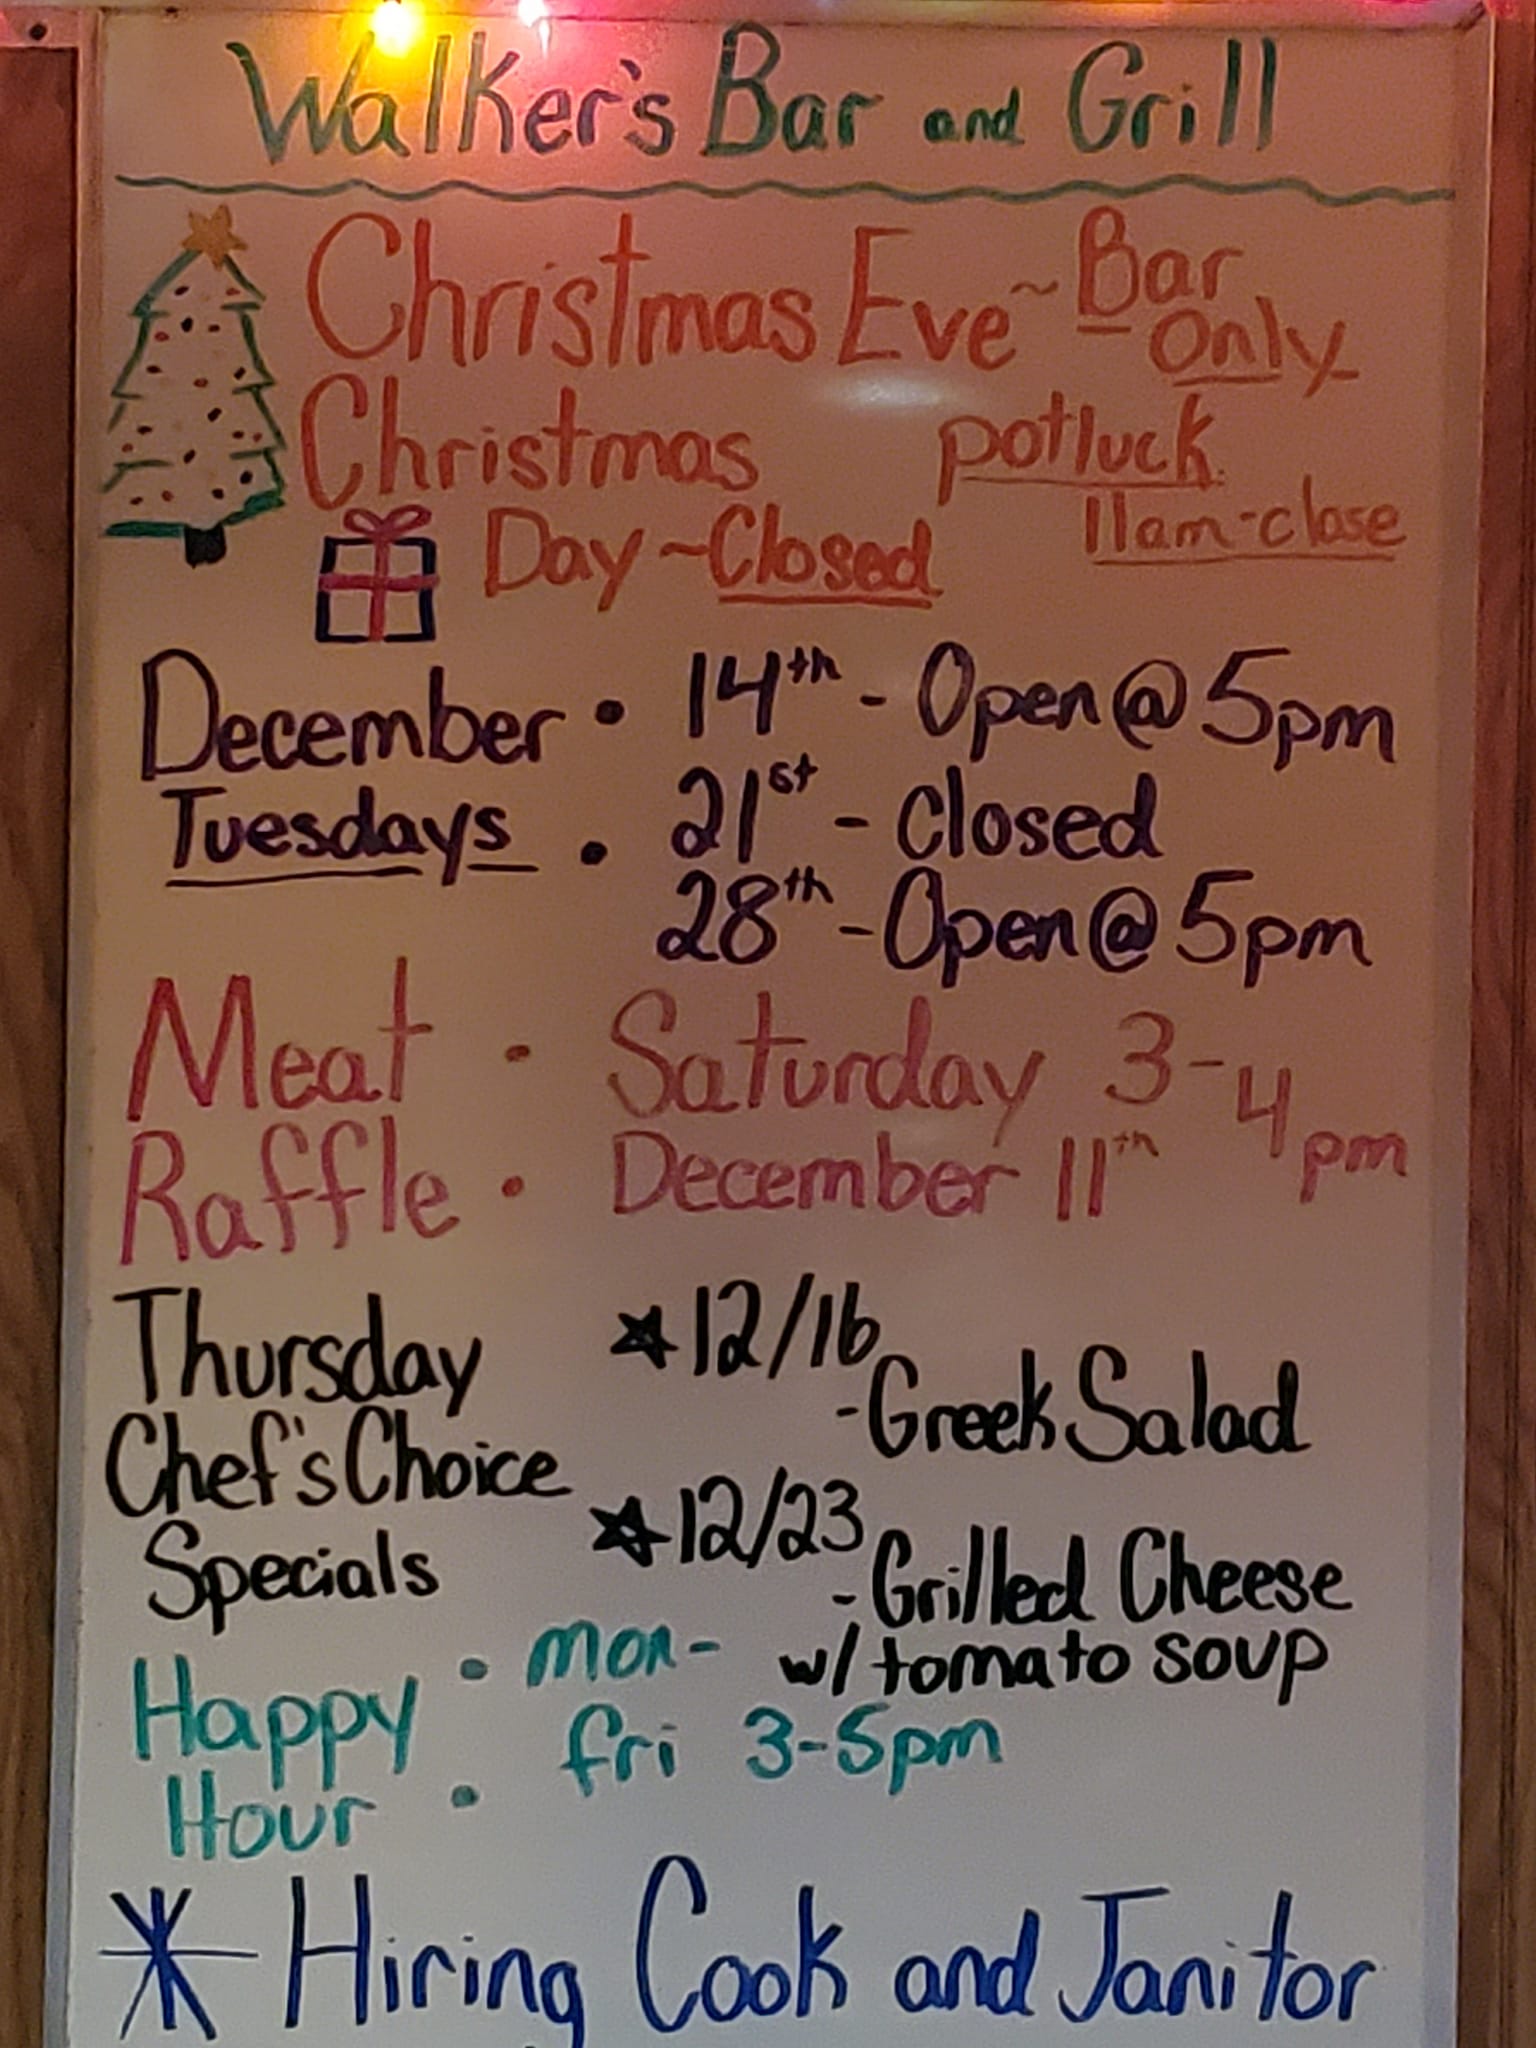 Walker's Bar and Grill
Christmas Eve ~ Bar Only
potluck
11am-close
Christmas
Day ~ Closed
December • 14th - Open @ 5pm
Tuesdays • 21st - Closed
28th - Open @ 5pm
Meat • Saturday 3-4pm
Raffle • December 11th
Thursday
Chef's Choice
Specials
☆ 12/16
- Greek Salad
☆ 12/23
- Grilled Cheese
w/ tomato soup
Happy • mon-
Hour • fri 3-5pm
* Hiring Cook and Janitor